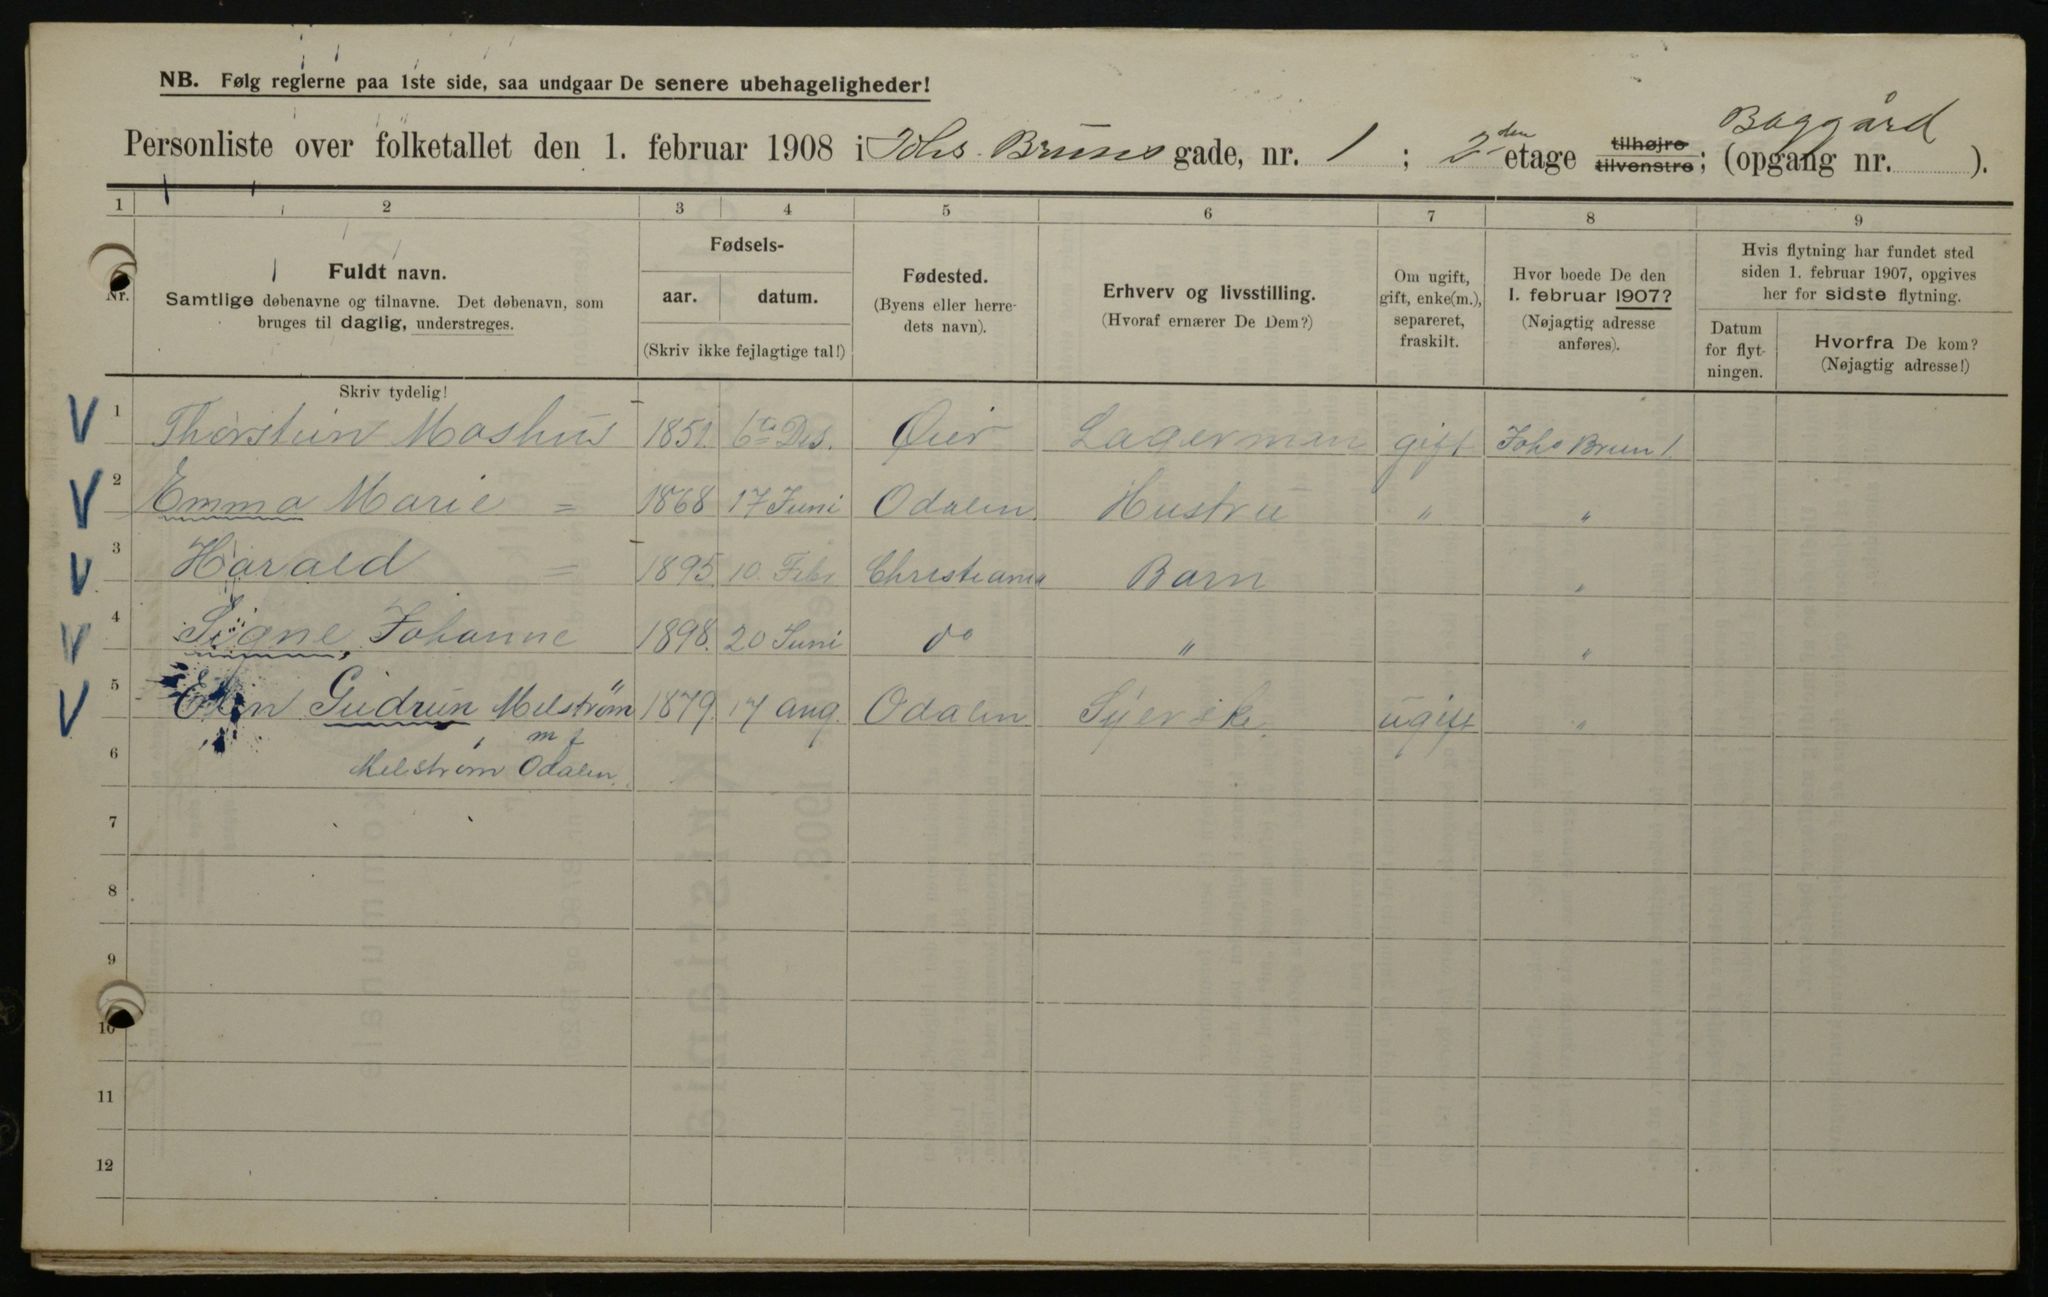 NB. Følg reglerne paa 1ste side, saa undgaar De senere ubehageligheder!
Baggård
Personliste over folketallet den 1. februar 1908 i Johs Bruns gade, nr. 1 ; 2den etage tilhøjre tilvenstre; (opgang nr. ).
1 2 3 4 5 6 7 8 9
Nr.
Fuldt navn.
Samtlige døbenavne og tilnavne. Det døbenavn, som
bruges til daglig, understreges.
Fødsels-
aar. datum.
(Skriv ikke fejlagtige tal!)
Fødested.
(Byens eller herre-
dets navn).
Erhverv og livsstilling.
(Hvoraf ernærer De Dem?)
Om ugift,
gift, enke(m.),
separeret,
fraskilt.
Hvor boede De den
1. februar 1907?
(Nøjagtig adresse
anføres).
Hvis flytning har fundet sted
siden 1. februar 1907, opgives
her for sidste flytning.
Datum
for flyt-
ningen.
Hvorfra De kom?
(Nøjagtig adresse!)
Skriv tydelig!
V 1 Thorstein Moshus 1851. 6te Des. Øier Lagerman gift Johs Brun 1.
V 2 Emma Marie = 1868 17 Juni Odalen Hustru " "
V 3 Harald = 1895 10. Febr Christiania Barn "
V 4 Signe, Johanne 1898. 20 Juni do " "
V 5 Gudrun Melstrøm 1879. 17 aug. Odalen Syerske. ugift "
6 m f
Melstrøm Odalen.
7
8
9
10
11
12